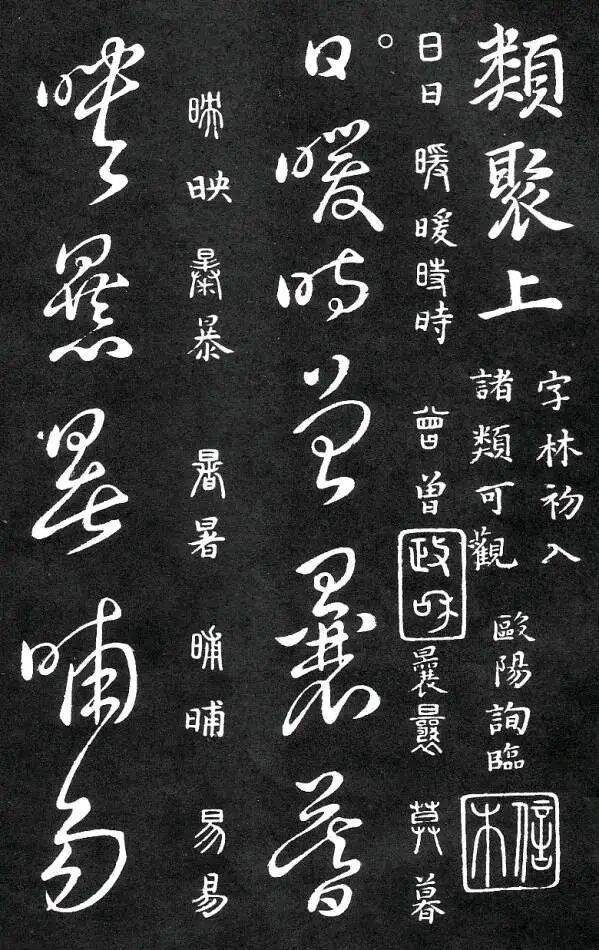 類聚上
字林初入
諸類可觀
歐陽詢臨
信本
日日 暖暖時時 曾曾 政和 曩 莫暮
日暖時曾曩暮
映 暴暴 暑暑 晡晡 易易
映暴暑晡易